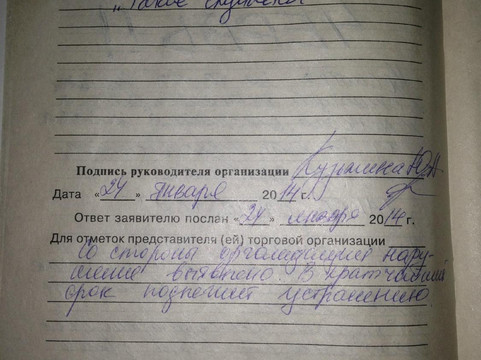 Подпись руководителя организации Кузьмина Ю.А
Дата «24» января 2014 г.
Ответ заявителю послан «24» января 2014 г.
Для отметок представителя (ей) торговой организации
Со стороны организации нару-
шение В кратчайший
срок подлежит устранению.